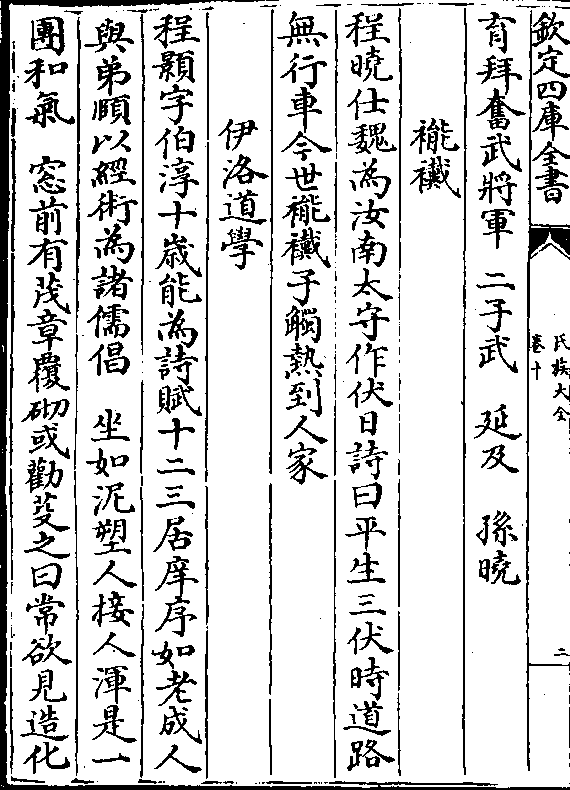 欽定四庫全書
氏族大全
卷十
二
育拜奮武將軍　二子武　延及　孫曉
褦襶
程曉仕魏為汝南太守作伏日詩曰平生三伏時道路
無行車今世褦襶子觸熱到人家
伊洛道學
程顥字伯淳十歲能為詩賦十二三居庠序如老成人
與弟頤以經術為諸儒倡　坐如泥塑人接人渾是一
團和氣　窓前有茂章覆砌或勸芟之曰常欲見造化